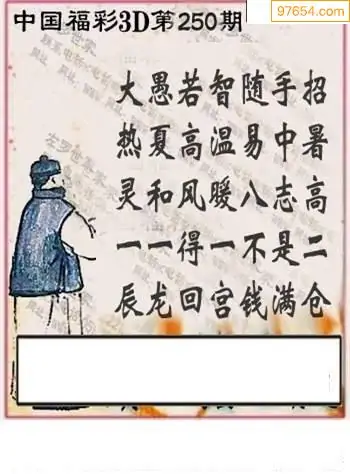 97654.com
中国福彩3D第250期
大愚若智随手招
热夏高温易中暑
灵和风暖八志高
一一得一不是二
辰龙回宫钱满仓